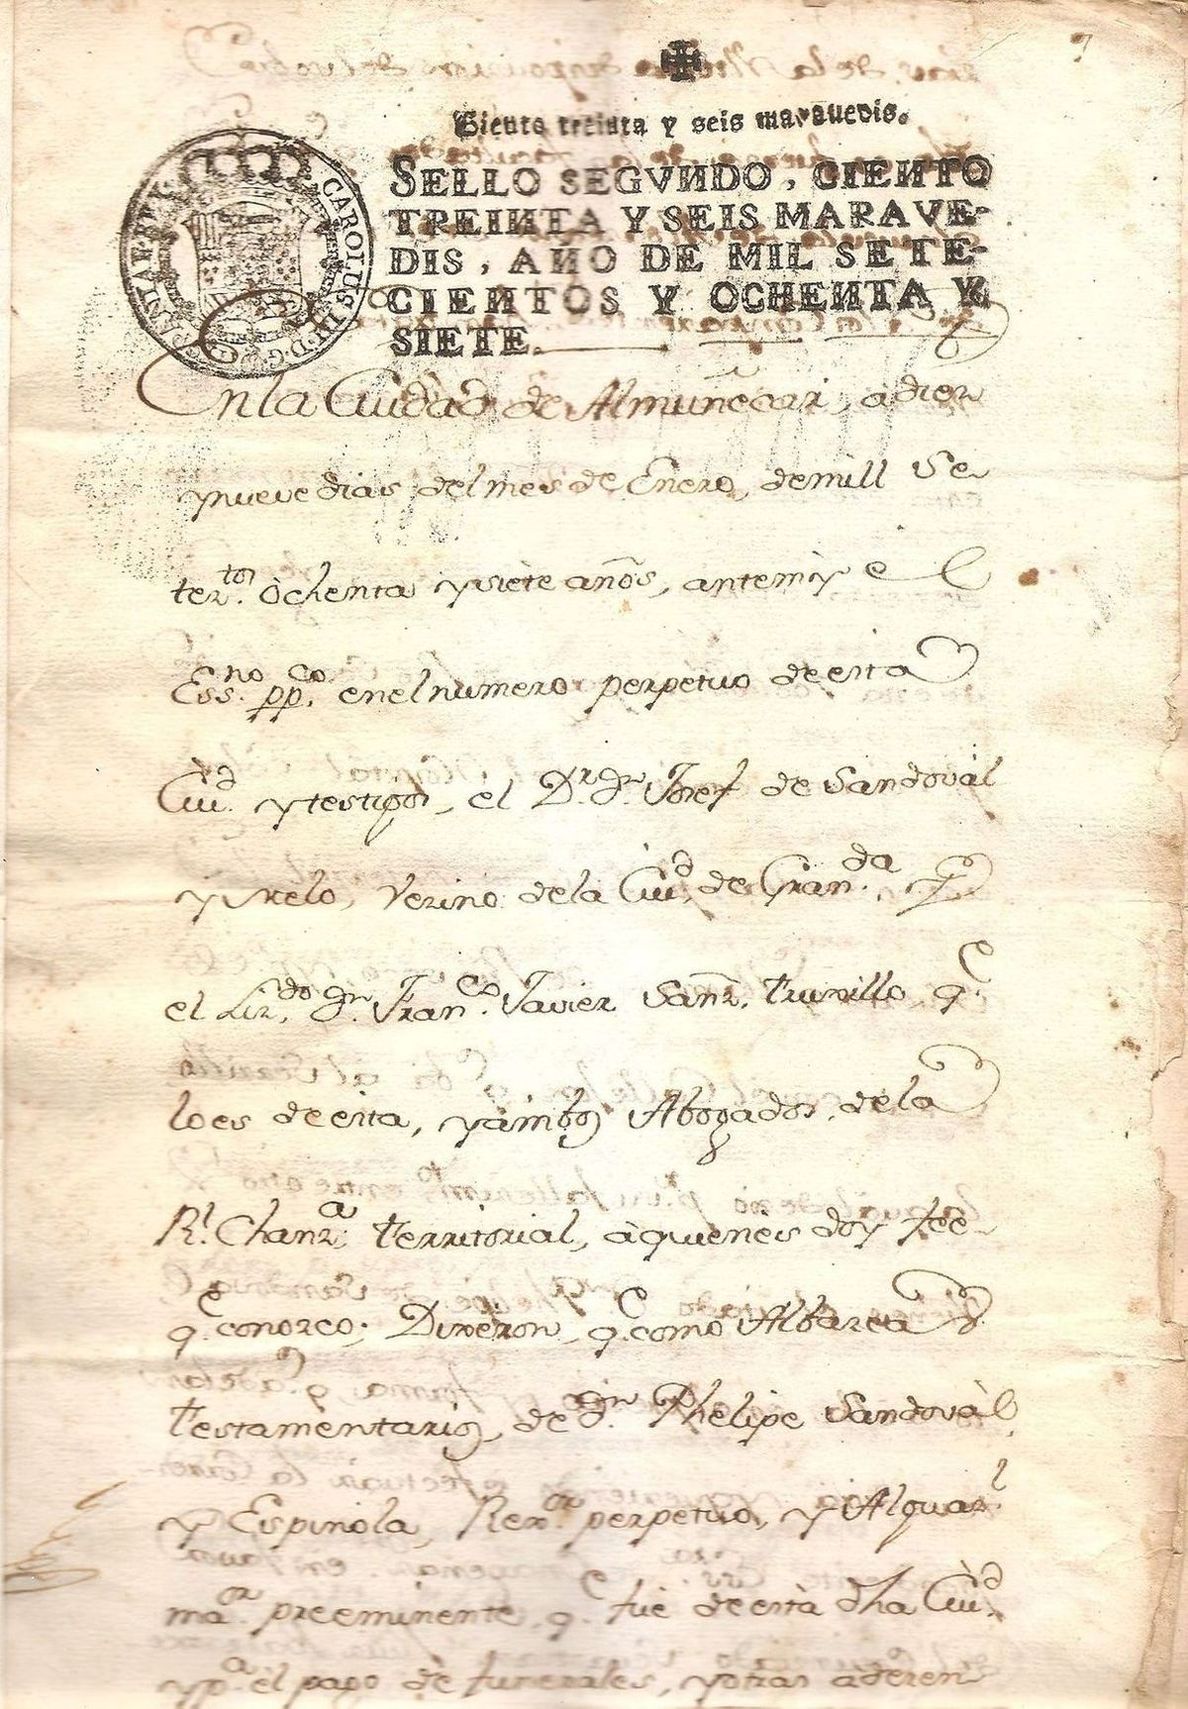 Ciento treinta y seis maravedis.
SELLO SEGVNDO, CIENTO
TREINTA Y SEIS MARAVE-
DIS, AÑO DE MIL SETE-
CIENTOS Y OCHENTA Y
SIETE.
CAROLUS III D G
En la Ciudad de Almuñecar, a diez
y nueve dias del mes de Enero, de mill Se
tez.tos ochenta y siete años, ante mi el
Ess.no pp.co en el numero perpetuo de esta
Ciu.d y testigos, el D.r d.n Josef de Sandoval
y Melo, Vezino de la Ciu.d de Gran.da, y
el Liz.do d.n Fran.co Javier Sanz. truxillo q.e
lo es de esta, y ambos Abogados, de la
R.l Chanz.a territorial, à quienes doy fee
q.e conozco; Dixeron, q.e como Albazeas
testamentarios, de d.n Phelipe Sandoval
y Espinola, Rex.or perpetuo, y Alguaz.l
ma.or preeminente, q.e fue de esta dha Ciu.d
y p.a el pago de funerales, y otras aderen